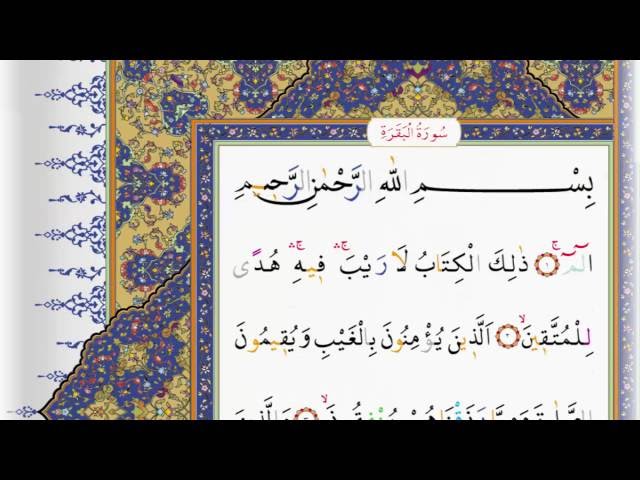 سُورَةُ الْبَقَرَةِ
بِسْمِ اللَّهِ الرَّحْمٰنِ الرَّحِيمِ
الٓمٓ ۚ ﴿١﴾ ذٰلِكَ الْكِتَابُ لَا رَيْبَ ۛ فِيهِ ۛ هُدًى
لِلْمُتَّقِينَ ۙ ﴿٢﴾ اَلَّذِينَ يُؤْمِنُونَ بِالْغَيْبِ وَيُقِيمُونَ